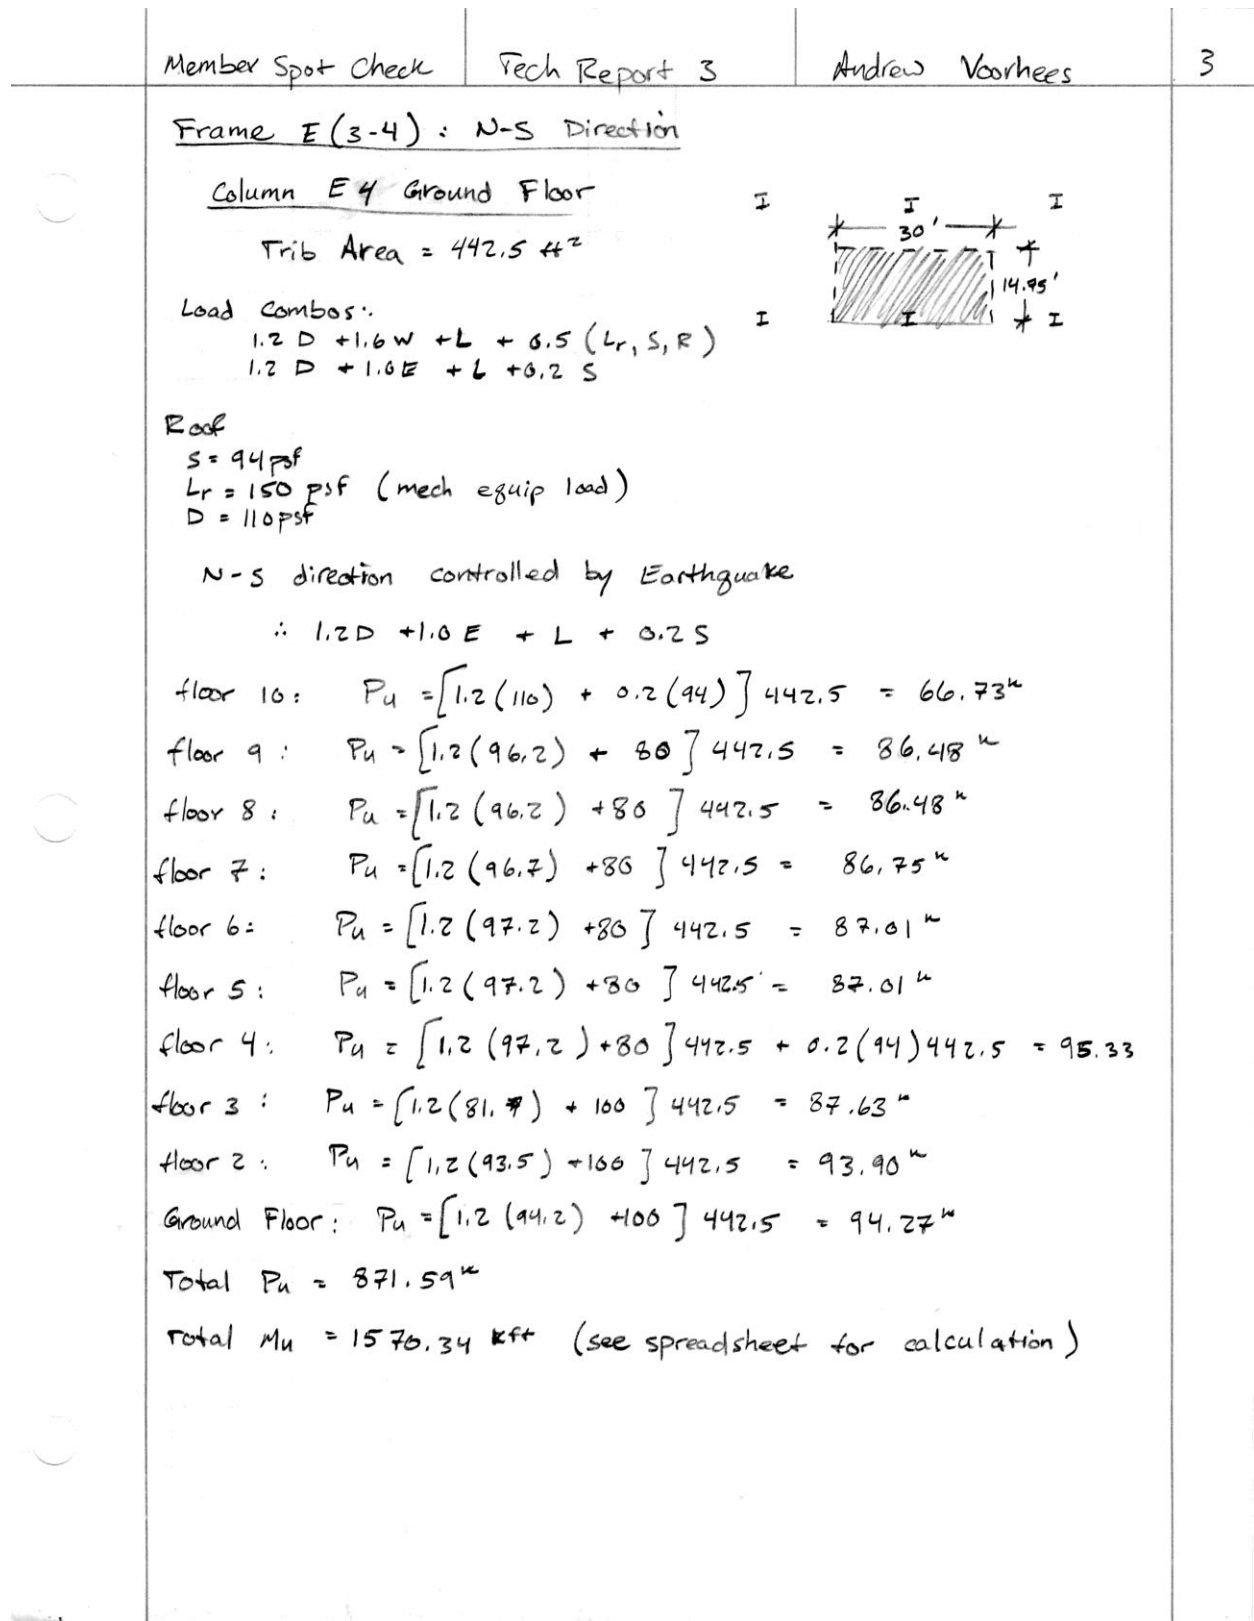 Member Spot Check Tech Report 3 Andrew Voorhees 3
Frame E (3-4) : N-S Direction
Column E4 Ground Floor
Trib Area = 442.5 ft²
30'
14.75'
Load Combos:
1.2 D + 1.6 W + L + 0.5 (Lr, S, R)
1.2 D + 1.0 E + L + 0.2 S
Roof
S = 94 psf
Lr = 150 psf (mech equip load)
D = 110 psf
N-S direction controlled by Earthquake
∴ 1.2D + 1.0 E + L + 0.2 S
floor 10: Pu = [1.2 (110) + 0.2 (94)] 442.5 = 66.73ᵏ
floor 9: Pu = [1.2 (96.2) + 80] 442.5 = 86.48ᵏ
floor 8: Pu = [1.2 (96.2) + 80] 442.5 = 86.48ᵏ
floor 7: Pu = [1.2 (96.7) + 80] 442.5 = 86.75ᵏ
floor 6: Pu = [1.2 (97.2) + 80] 442.5 = 87.01ᵏ
floor 5: Pu = [1.2 (97.2) + 80] 442.5 = 87.01ᵏ
floor 4: Pu = [1.2 (97.2) + 80] 442.5 + 0.2 (94) 442.5 = 95.33
floor 3: Pu = [1.2 (81.7) + 100] 442.5 = 87.63ᵏ
floor 2: Pu = [1.2 (93.5) + 100] 442.5 = 93.90ᵏ
Ground Floor: Pu = [1.2 (94.2) + 100] 442.5 = 94.27ᵏ
Total Pu = 871.59ᵏ
Total Mu = 1570.34 kft (see spreadsheet for calculation)